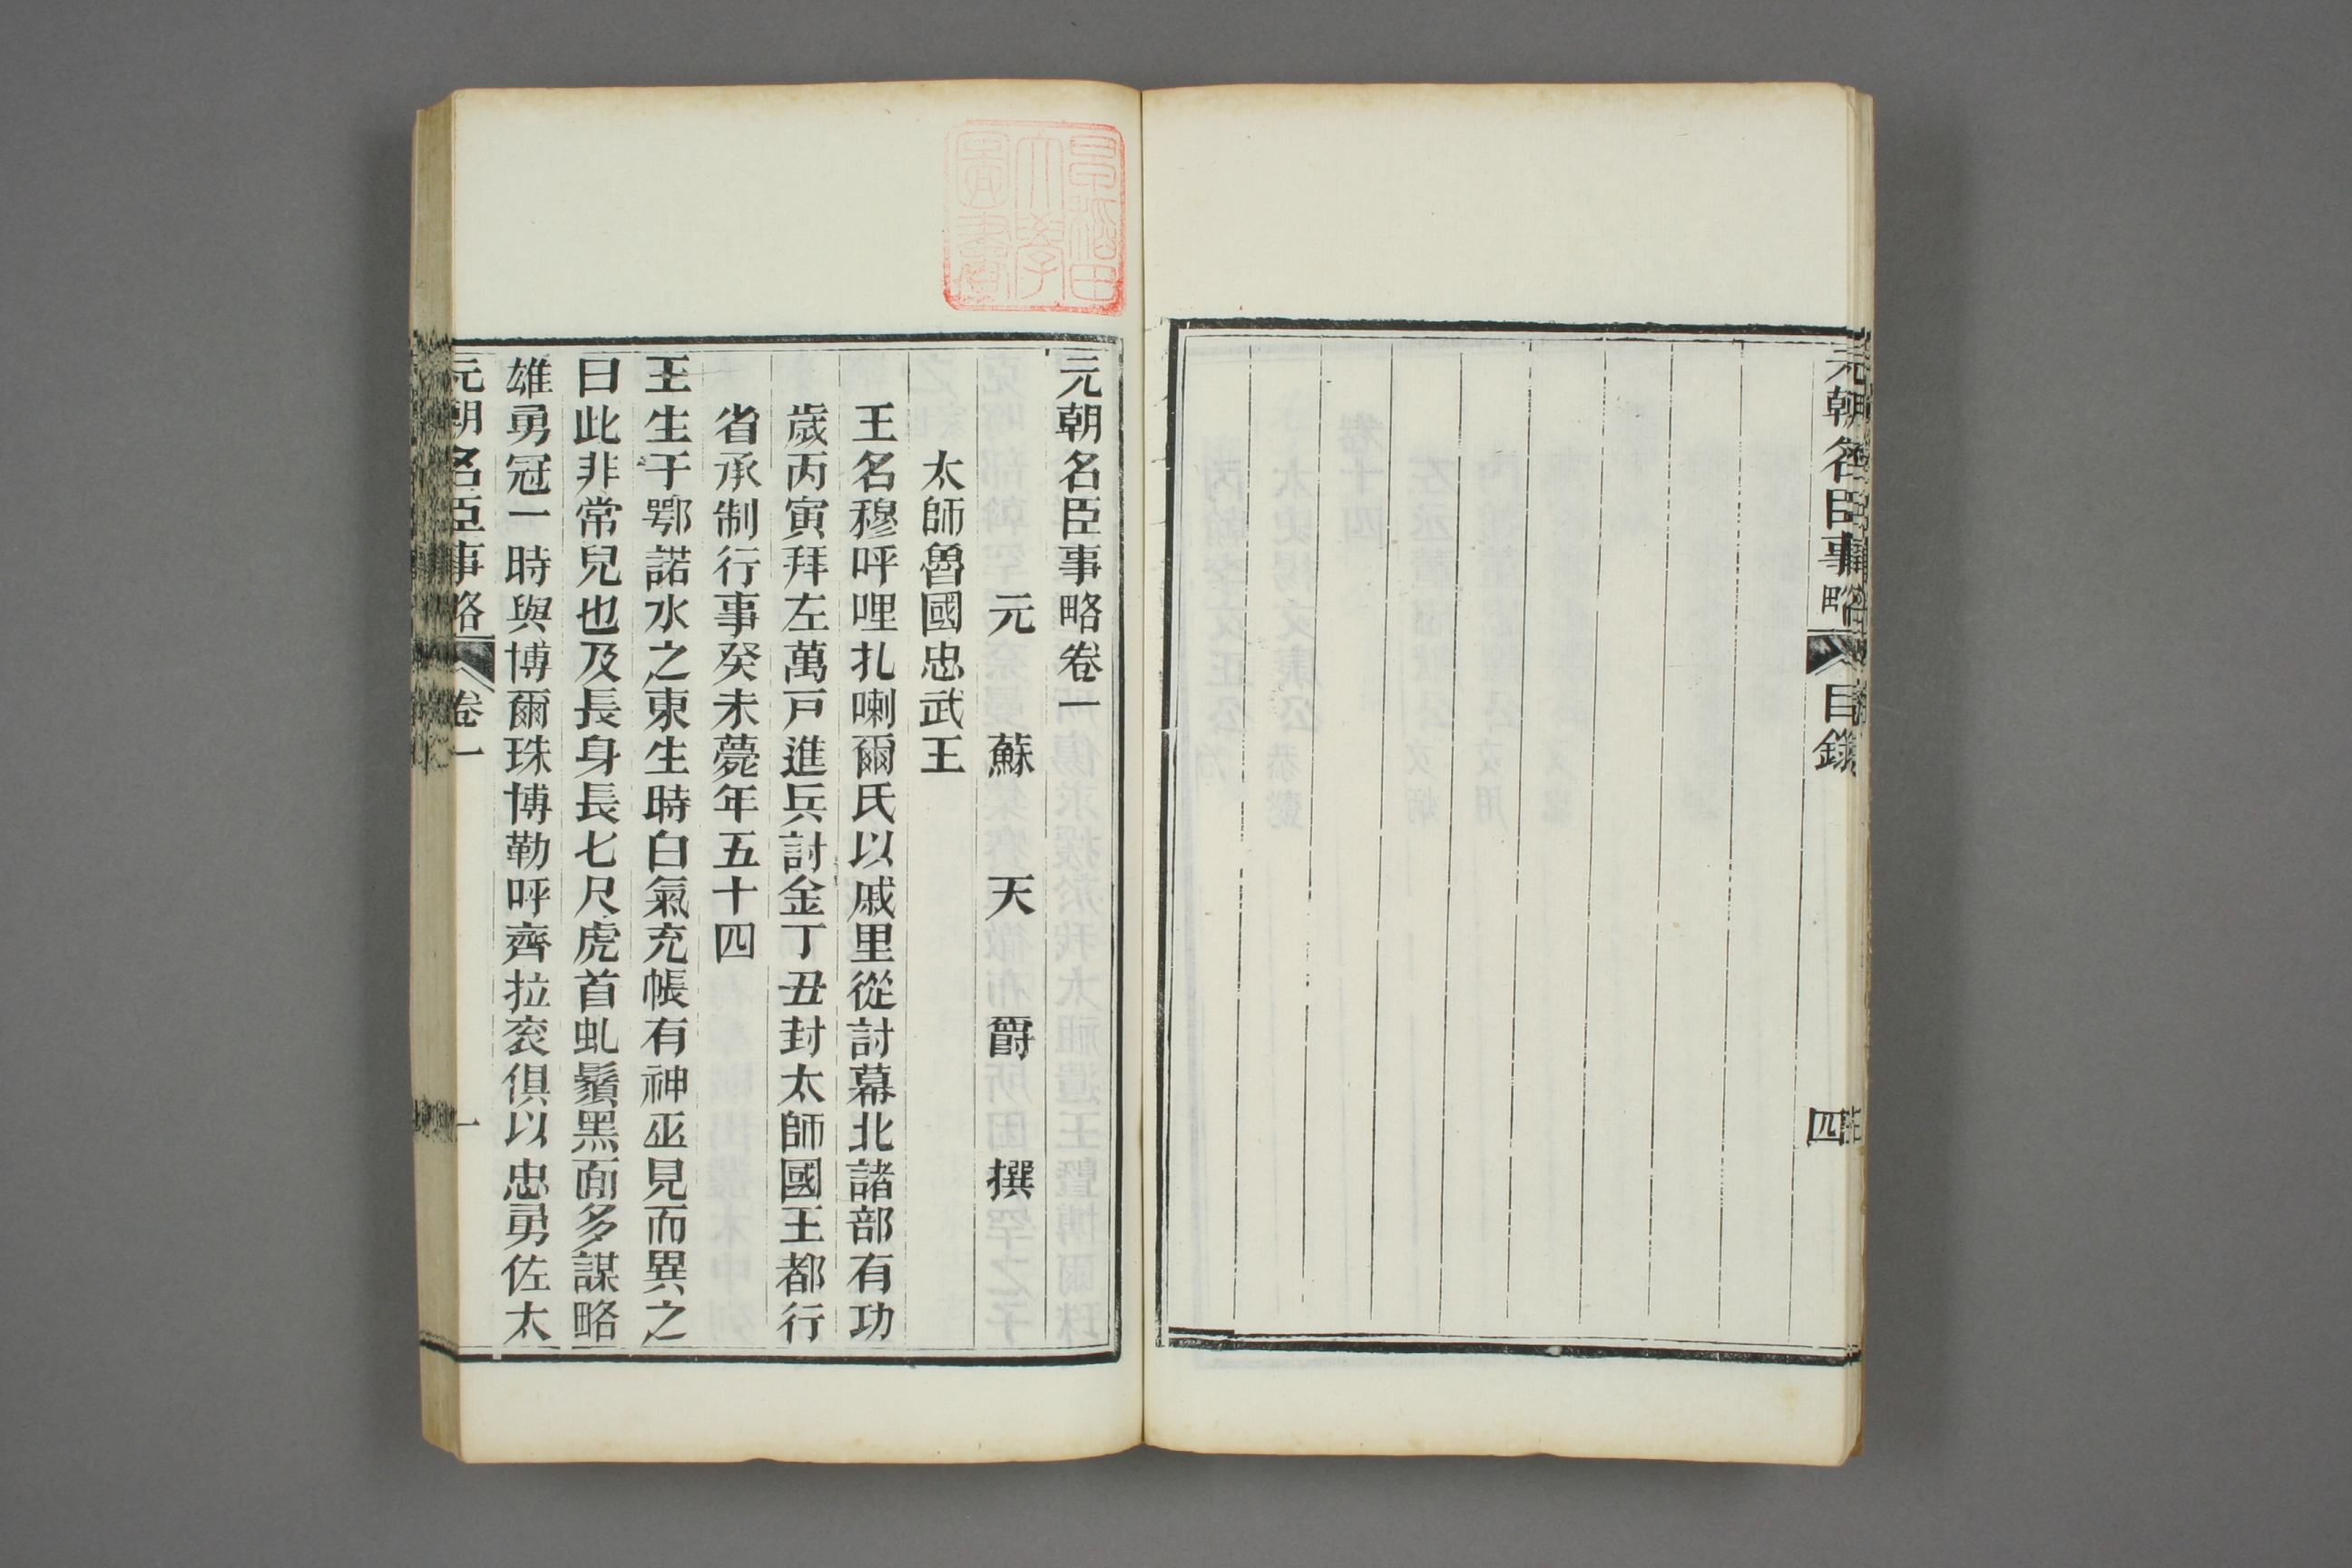 元朝名臣事略
目錄
四
早稲田
大學
圖書
元朝名臣事略卷一
元 蘇 天 爵 撰
太師魯國忠武王
王名穆呼哩扎喇爾氏以戚里從討幕北諸部有功
歲丙寅拜左萬戸進兵討金丁丑封太師國王都行
省承制行事癸未薨年五十四
王生于鄂諾水之東生時白氣充帳有神巫見而異之
曰此非常兒也及長身長七尺虎首虬鬚黑面多謀略
雄勇冠一時與博爾珠博勒呼齊拉衮俱以忠勇佐太
元朝名臣事略
卷一
一